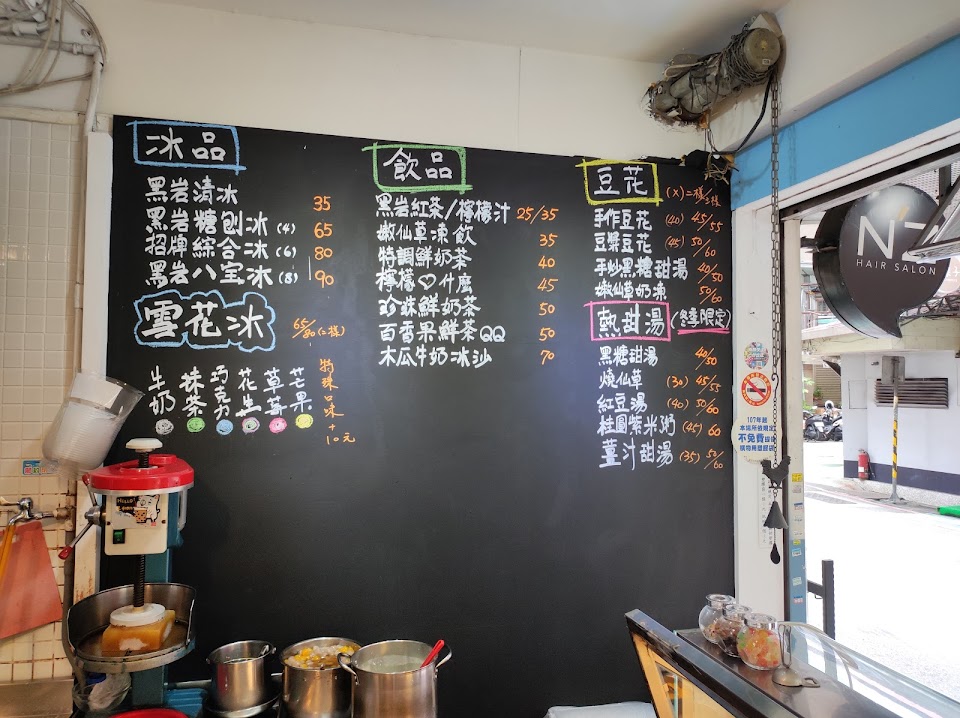 冰品
黑岩清冰 35
黑岩糖刨冰(4) 65
招牌綜合冰(6) 80
黑岩八宝冰(8) 90
雪花冰 65/80(二樣)
牛奶 抹茶 巧克力 花生 草莓 芒果
特殊口味+10元
飲品
黑岩紅茶/檸檬汁 25/35
嫩仙草凍飲 35
特調鮮奶茶 40
檸檬♡什麼 45
珍珠鮮奶茶 50
百香果鮮茶QQ 50
木瓜牛奶冰沙 70
豆花 (X)=樣/三樣
手作豆花 (40) 45/55
豆漿豆花 (45) 50/60
手炒黑糖甜湯 40/50
嫩仙草奶凍 50/60
熱甜湯 (冬季限定)
黑糖甜湯 40/50
燒仙草 (30) 45/55
紅豆湯 (40) 50/60
桂圓紫米粥 (45) 60
薑汁甜湯 (35) 50/60
HAIR SALON
107年起
本店所依規定
不免費提供
購物用塑膠袋